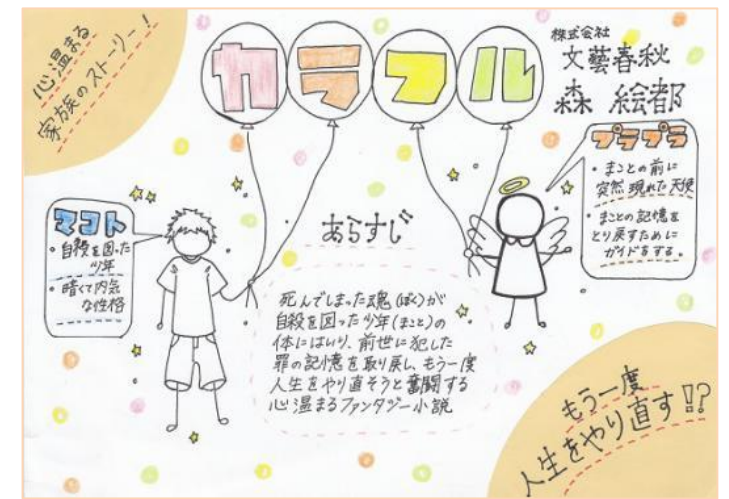 心温まる
家族のストーリー！
カラフル
株式会社
文藝春秋
森 絵都
プラプラ
・まことの前に
突然現れた天使
・まことの記憶を
とり戻すために
ガイドをする。
マコト
・自殺を図った
少年
・暗くて内気
な性格
あらすじ
死んでしまった魂(ぼく)が
自殺を図った少年(まこと)の
体にはいり、前世に犯した
罪の記憶を取り戻し、もう一度
人生をやり直そうと奮闘する
心温まるファンタジー小説
もう一度
人生をやり直す!?